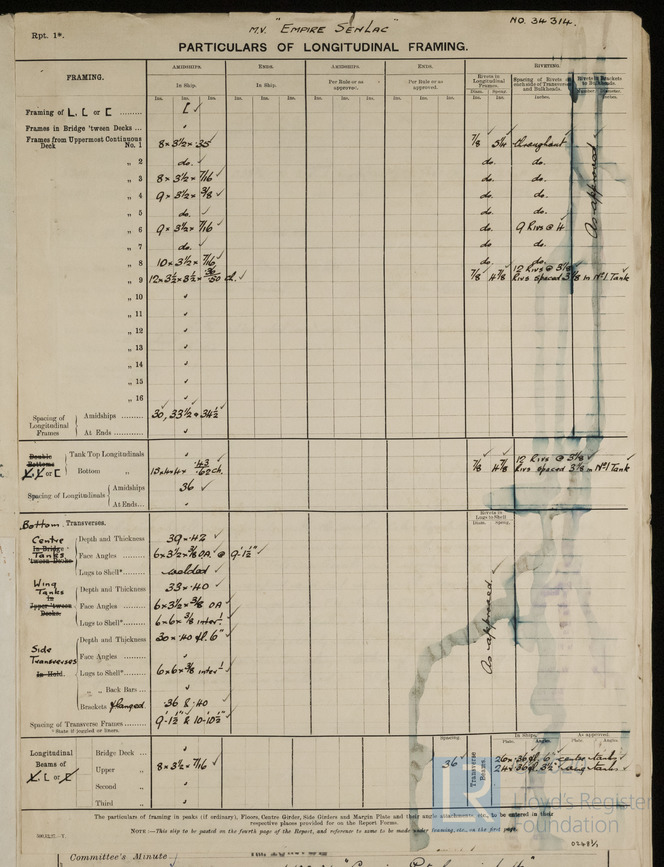 Rpt. 1*.
M.V. "EMPIRE SENLAC"
NO. 34314.
PARTICULARS OF LONGITUDINAL FRAMING.
FRAMING.
AMIDSHIPS. ENDS. AMIDSHIPS. ENDS. RIVETING.
In Ship. In Ship. Per Rule or as approved. Per Rule or as approved.
Rivets in Longitudinal Frames. Spacing of Rivets on each side of Transverses and Bulkheads. Rivets in Brackets to Bulkheads.
Ins. Ins. Ins. Ins. Ins. Ins. Ins. Ins. Ins. Ins. Ins. Ins. Diam. Spacg. Inches.
Framing of L, [ or [ [ ✓
Frames in Bridge 'tween Decks ...
Frames from Uppermost Continuous Deck No. 1 8 × 3½ × .35 ✓ 7/8 5¼ throughout
„ 2 do. ✓ do. do.
„ 3 8 × 3½ × 7/16 ✓ do. do.
„ 4 9 × 3½ × 3/8 ✓ do. do.
„ 5 do. ✓ do. do.
„ 6 9 × 3½ × 7/16 ✓ do. 9 Rivs @ 4
„ 7 do. ✓ do. do.
„ 8 10 × 3½ × 7/16 ✓ do. do.
12 Rivs @ 3⅛
„ 9 12 × 3½ × 3½ × 7/8 4⅞ Rivs spaced 3⅛ in Nº1 Tank
As approved
„ 10
„ 11
„ 12
„ 13
„ 14
„ 15
„ 16
Spacing of Longitudinal Frames Amidships 30, 33½ & 34½
At Ends
Double Bottoms Tank Top Longitudinals 12 Rivs @ 3⅛
L, L or [ Bottom „ 15 × 4 × 4 × .43/.62 ch. 7/8 4⅞ Rivs spaced 3⅛ in Nº1 Tank
Spacing of Longitudinals Amidships 36 ✓
At Ends...
Rivets in Lugs to Shell
Diam. Spacg.
Bottom Transverses.
Centre Tanks In Bridge 'tween Decks
Depth and Thickness 39 × .42 ✓
Face Angles 6 × 3½ × 3/8 OA @ 9'-1½" ✓
Lugs to Shell* welded ✓
Wing Tanks In Upper 'tween Decks.
Depth and Thickness 33 × .40 ✓
Face Angles 6 × 3½ × 3/8 OA
Lugs to Shell* 6 × 6 × 3/8 inter!
Side Transverses In Hold.
Depth and Thickness 30 × .40 fl. 6"
Face Angles
Lugs to Shell* 6 × 6 × 3/8 inter!
„ „ Back Bars
Brackets flanged 36 & .40
As approved
Spacing of Transverse Frames 9'-1½" & 10'-10½"
* State if joggled or liners.
Spacing. In Ship. As approved.
Plate. Angles. Plate. Angles.
Longitudinal Beams of L, [ or [
Bridge Deck ...
Upper „ 8 × 3½ × 7/16 ✓ 36
Second „
Third „
Transverse Beams.
26 × .36 fl. 6" centre tanks
24 × .36 fl. 3½" wing tanks
The particulars of framing in peaks (if ordinary), Floors, Centre Girder, Side Girders and Margin Plate and their angle attachments etc., to be entered in their respective places provided for on the Report Forms.
NOTE.—This slip to be pasted on the fourth page of the Report, and reference to same to be made under framing, etc., on the first page.
Lloyd's Register Foundation
Committee's Minute